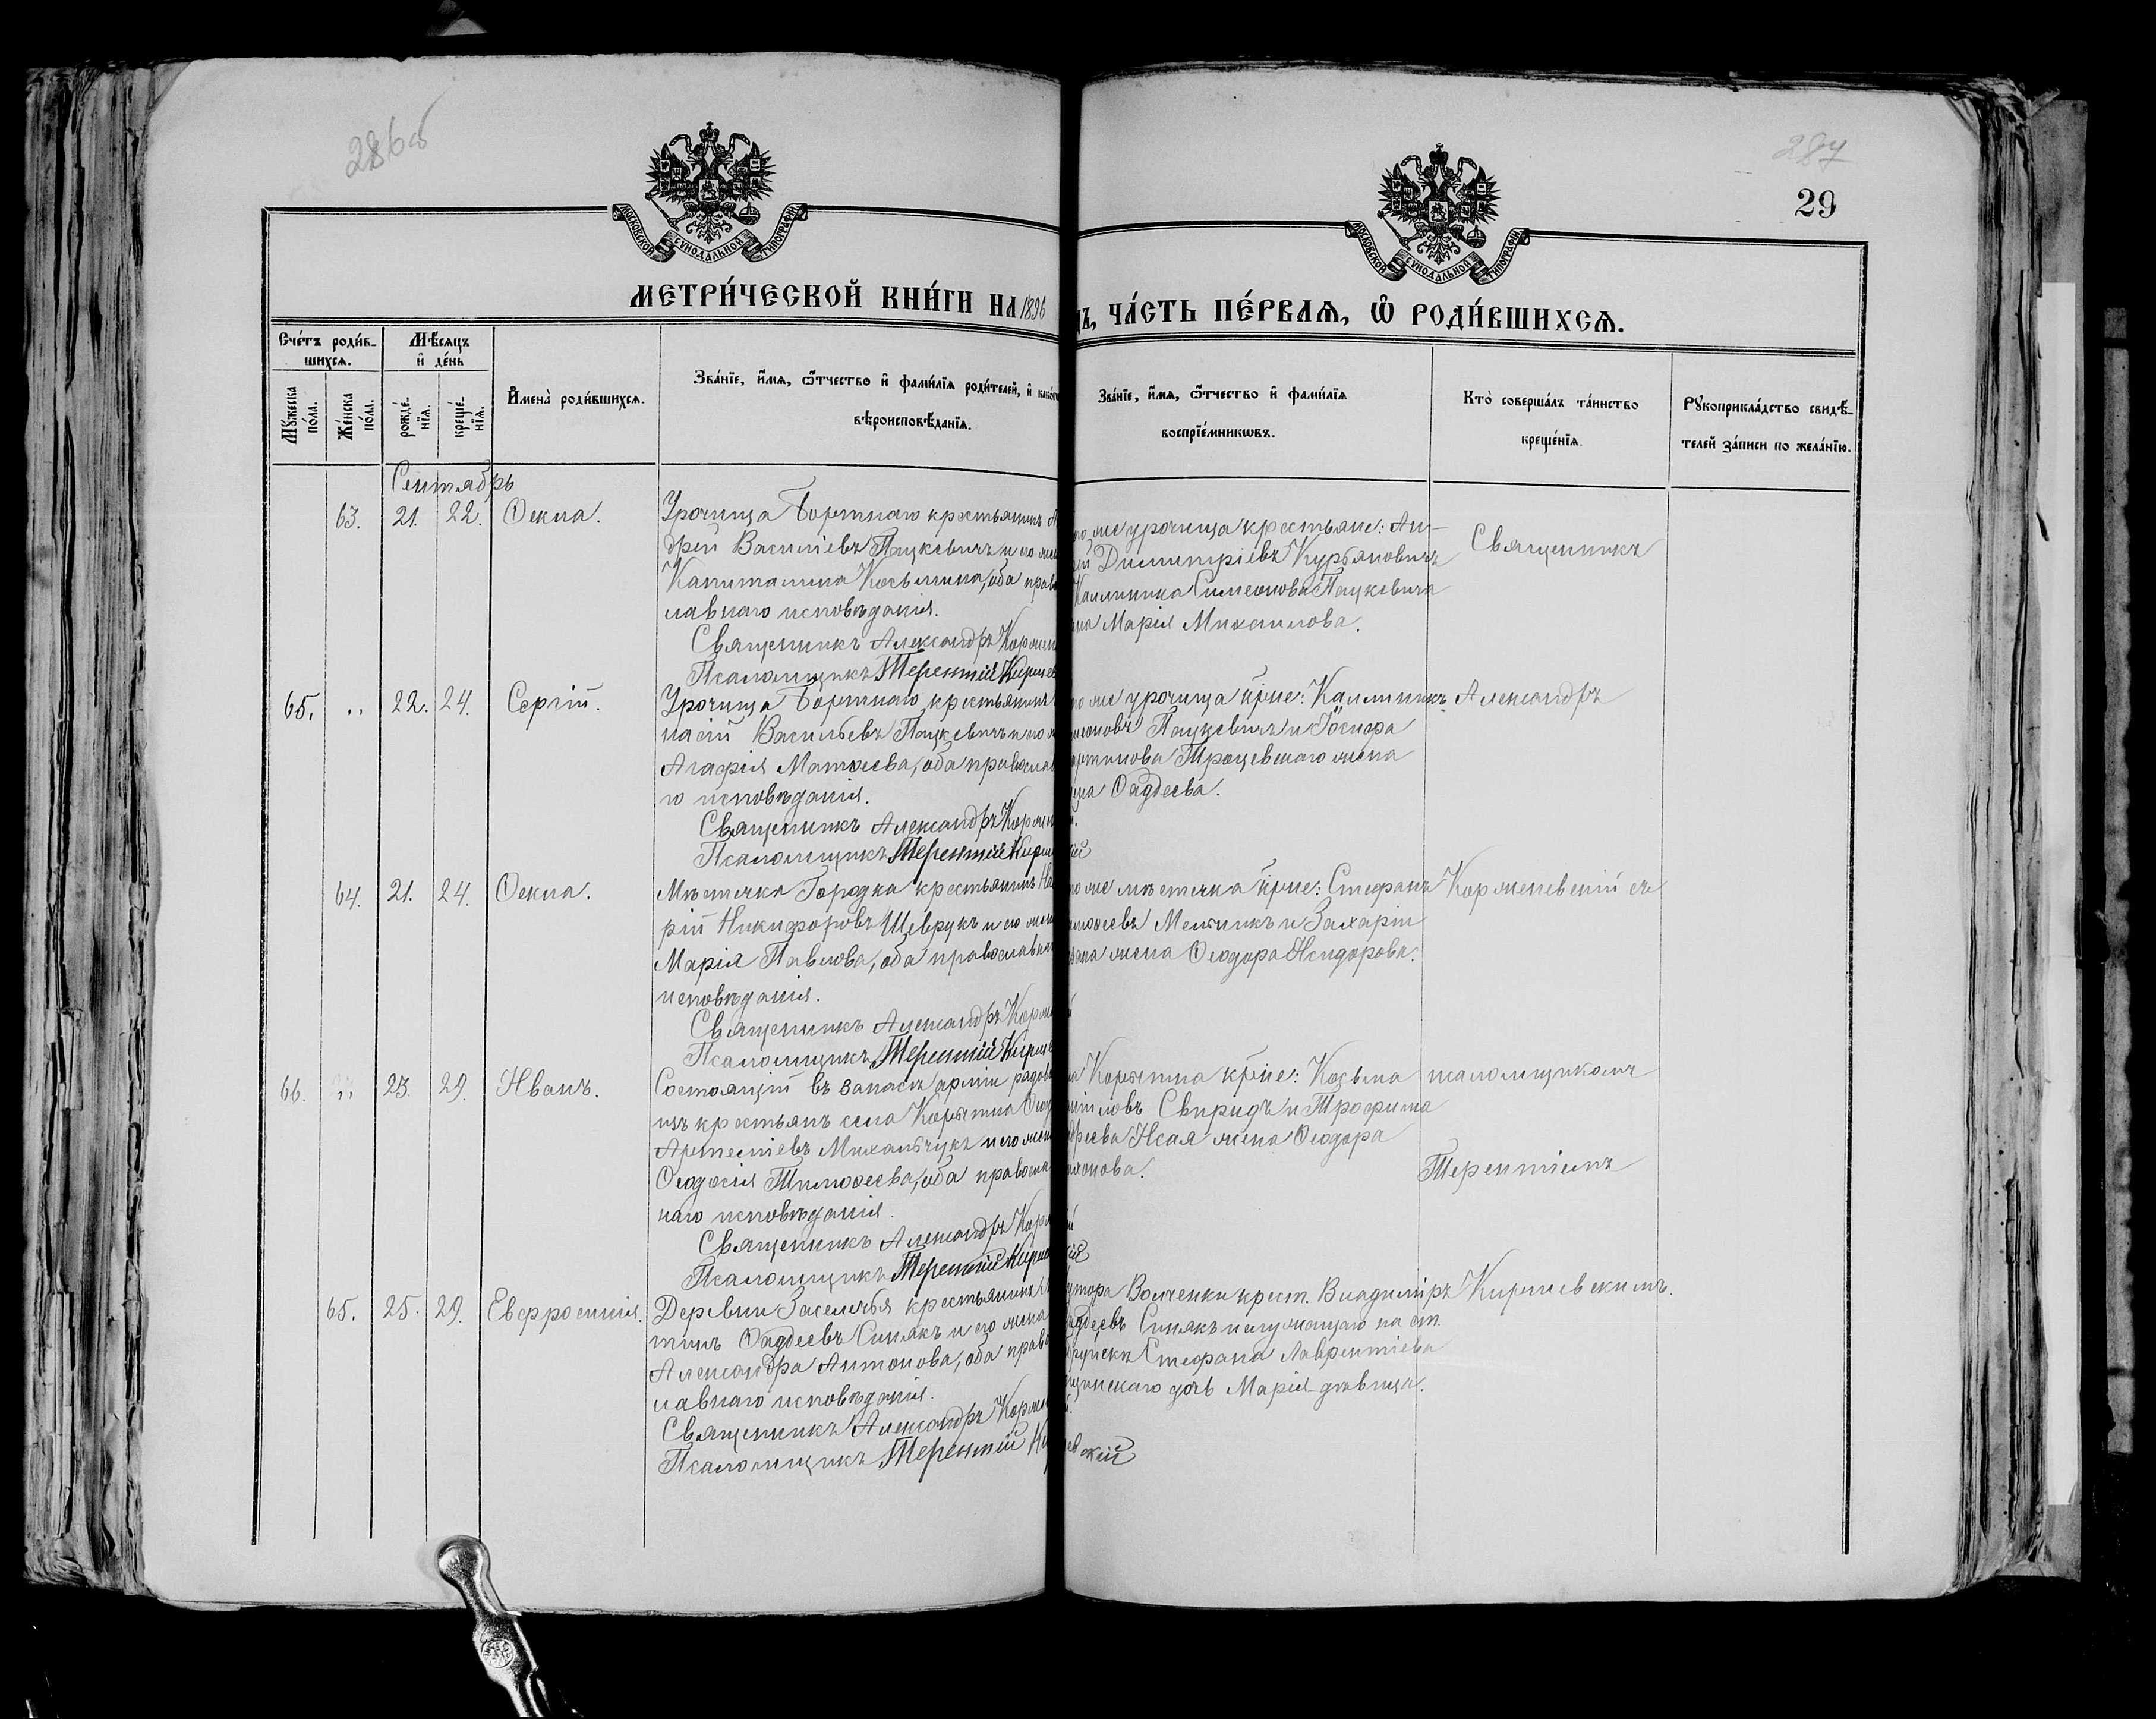 286об
287
29
МОСКОВСКОЙ СУНОДАЛЬНОЙ ТИПОГРАФІИ
МОСКОВСКОЙ СУНОДАЛЬНОЙ ТИПОГРАФІИ
МЕТРИ́ЧЕСКОЙ КНИ́ГИ НА 1896
ДЪ, ЧА́СТЬ ПЕ́РВАѦ, Ѡ҆ РОДИ́ВШИХСѦ.
Сче́тъ роди́в-
шихсѧ.
Мꙋжеска по́ла.
Же́нска по́ла.
Мѣ́сѧцъ
и҆ де́нь
рожде́-
нїѧ.
креще́-
нїѧ.
И҆мена̀ роди́вшихсѧ.
Зва́нїе, и҆́мѧ, ѻ҆́тчество и҆ фами́лїѧ роди́телей, и҆ како́гѡ
вѣроисповѣ́данїѧ.
Зва́нїе, и҆́мѧ, ѻ҆́тчество и҆ фами́лїѧ
воспрїе́мникѡвъ.
Кто̀ соверша́лъ та́инство
креще́нїѧ.
Рꙋкоприкла́дство свидѣ́-
телей за́писи по жела́нїю.
Сентябрь
63. 21. 22. Ѳекла.
Урочища Бортнаго крестьянинъ Ан
дрей Василіевъ Пацкевичъ и его жен
Капитолина Косьмина, оба право
лавнаго исповѣданія.
Священникъ Александръ Кормен
Псаломщикъ Терентій Кириев
го же урочища крестьяне: Ан-
ей Димитріевъ Курьяновичъ
Каллиника Симеонова Пацкевича
на Марія Михаилова.
Священникъ
65. „ 22. 24. Сергій.
Урочища Бортнаго крестьянинъ
насій Васильевъ Пацкевичъ и его ж
Агафія Матѳеева, оба православ
го исповѣданія.
Священникъ Александръ Кормен
Псаломщикъ Терентій Кири
го же урочища кр̃не: Каллиникъ
меоновъ Пацкевичъ и Іосифа
артинова Троцевскаго жена
Ѳаддеева.
Александръ
64. 21. 24. Ѳекла.
Мѣстечка Городка крестьянинъ
рій Никифоровъ Шеврукъ и его жен
Марія Павлова, оба православна
исповѣданія.
Священникъ Александръ Корме
Псаломщикъ Терентій Кирие
го же мѣстечка кр̃не: Стефанъ
имоѳеевъ Мельникъ и Захаріи
жена Ѳеодора Исидорова.
Корменевскій съ
66. „ 23. 29. Иванъ.
Состоящій въ запасѣ арміи рядов
изъ крестьянъ села Корытна Ѳеод
Артеміевъ Михальчукъ и его жен
Ѳеодосія Тимоѳеева, оба правосла
наго исповѣданія.
Священникъ Александръ Корм
Псаломщикъ Терентій Кири
Корытна кр̃не: Козьма
иловъ Свиридъ и Трофима
дреева Исая жена Ѳеодора
псаломщикомъ
Терентіемъ
65. 25. 29. Евфросинія.
Деревни Заселичья крестьянинъ
тинъ Ѳаддеевъ Синякъ и его жена
Александра Антонова, оба право
лавнаго исповѣданія.
Священникъ Александръ Кормен
Псаломщикъ Терентій Ки
утора Волченки крест. Владиміръ
аддеевъ Синякъ и служащаго на ст.
Стефана Лаврентіева
дочь Марія-дѣвица.
евскій
Киріевскимъ.